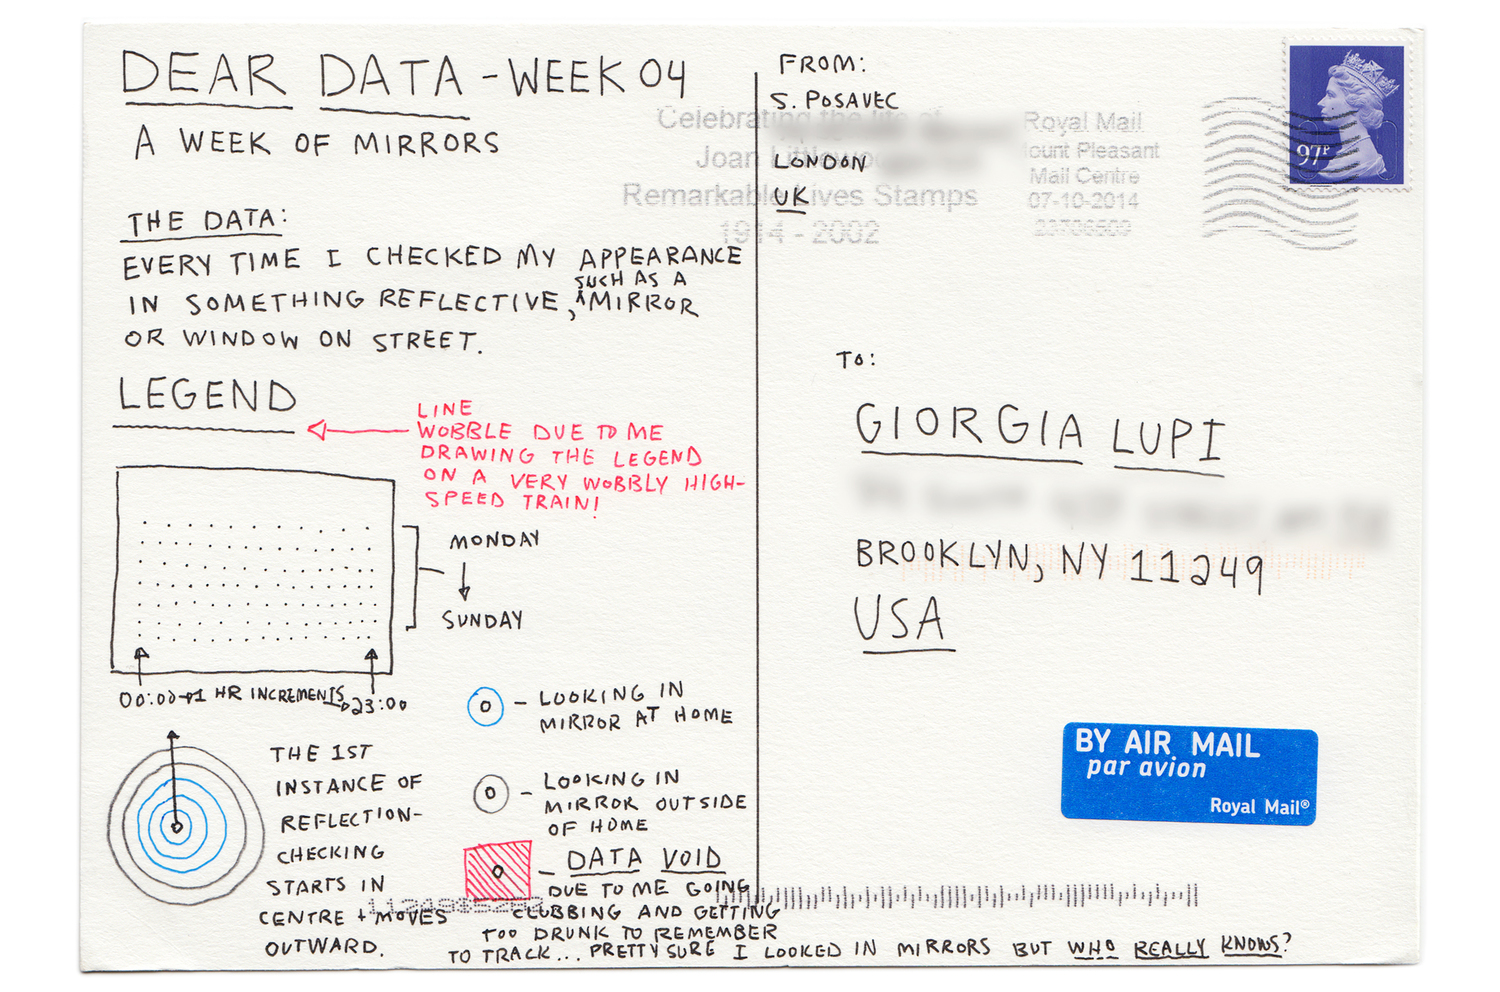 DEAR DATA - WEEK 04
A WEEK OF MIRRORS
THE DATA:
EVERY TIME I CHECKED MY APPEARANCE
IN SOMETHING REFLECTIVE, SUCH AS A MIRROR
OR WINDOW ON STREET.
LEGEND
LINE
WOBBLE DUE TO ME
DRAWING THE LEGEND
ON A VERY WOBBLY HIGH-
SPEED TRAIN!
MONDAY
SUNDAY
00:00 → 1 HR INCREMENTS → 23:00
THE 1ST
INSTANCE OF
REFLECTION-
CHECKING
STARTS IN
CENTRE + MOVES
OUTWARD.
- LOOKING IN
MIRROR AT HOME
- LOOKING IN
MIRROR OUTSIDE
OF HOME
- DATA VOID
DUE TO ME GOING
CLUBBING AND GETTING
TOO DRUNK TO REMEMBER
TO TRACK... PRETTY SURE I LOOKED IN MIRRORS BUT WHO REALLY KNOWS?
FROM:
S. POSAVEC
LONDON
UK
Celebrating the life of
Joan Littlewood
Remarkable Lives Stamps
1914 - 2002
Royal Mail
Mount Pleasant
Mail Centre
07-10-2014
97P
TO:
GIORGIA LUPI
BROOKLYN, NY 11249
USA
BY AIR MAIL
par avion
Royal Mail®